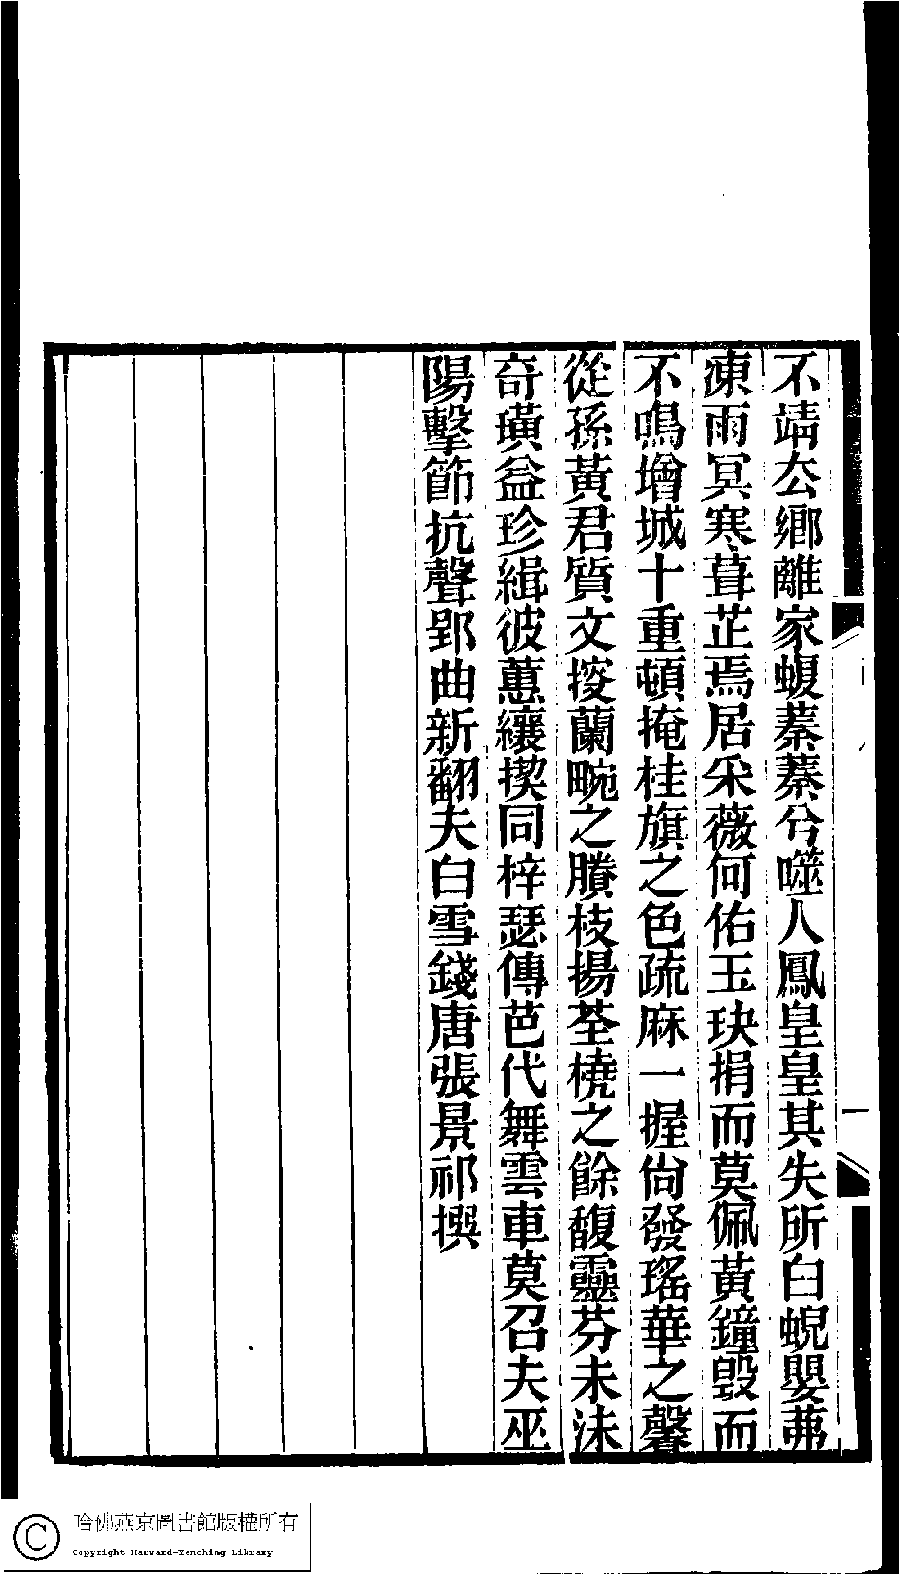 不靖厺鄉離家蝮蓁蓁兮噬人鳳皇皇其失所白蜺嬰茀
凍雨冥寒葺芷焉居采薇何佑玉玦捐而莫佩黃鐘毀而
不鳴增城十重頓掩桂旗之色疏麻一握尙發瑤華之馨
從孫黃君質文挼蘭畹之賸枝揚荃橈之餘馥靈芬未沬
奇璜益珍緝彼蕙纕揳同梓瑟傳芭代舞雲車莫召夫巫
陽擊節抗聲郢曲新翻夫白雪錢唐張景祁撰
哈佛燕京圖書館版權所有
Copyright Harvard-Yenching Library